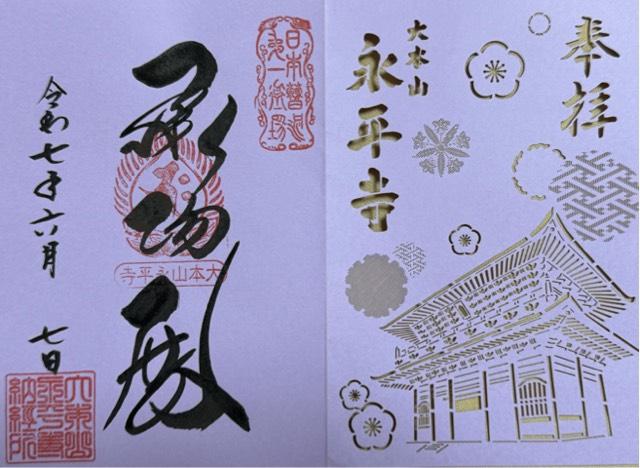 奉拝
大本山
永平寺
日本曹洞
第一道場
承陽殿
大本山永平寺
令和七年六月 七日
納経所